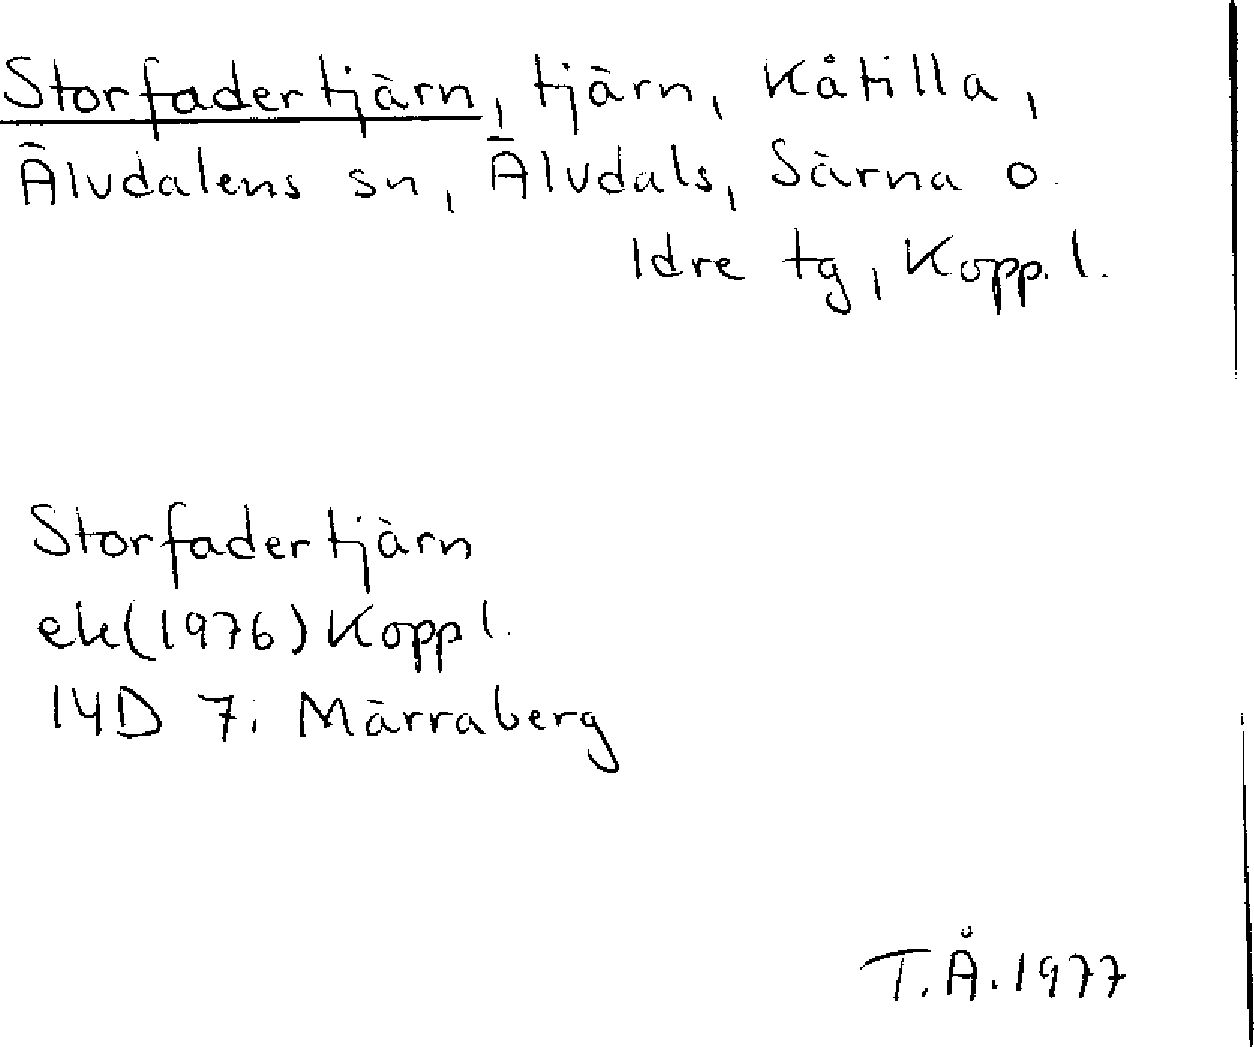 Storfadertjärn, tjärn, Kåtilla,
Älvdalens sn, Älvdals, Särna o.
Idre tg, Kopp. l.
Storfadertjärn
ek(1976) Kopp l.
14D 7i Märraberg
T.Å. 1977